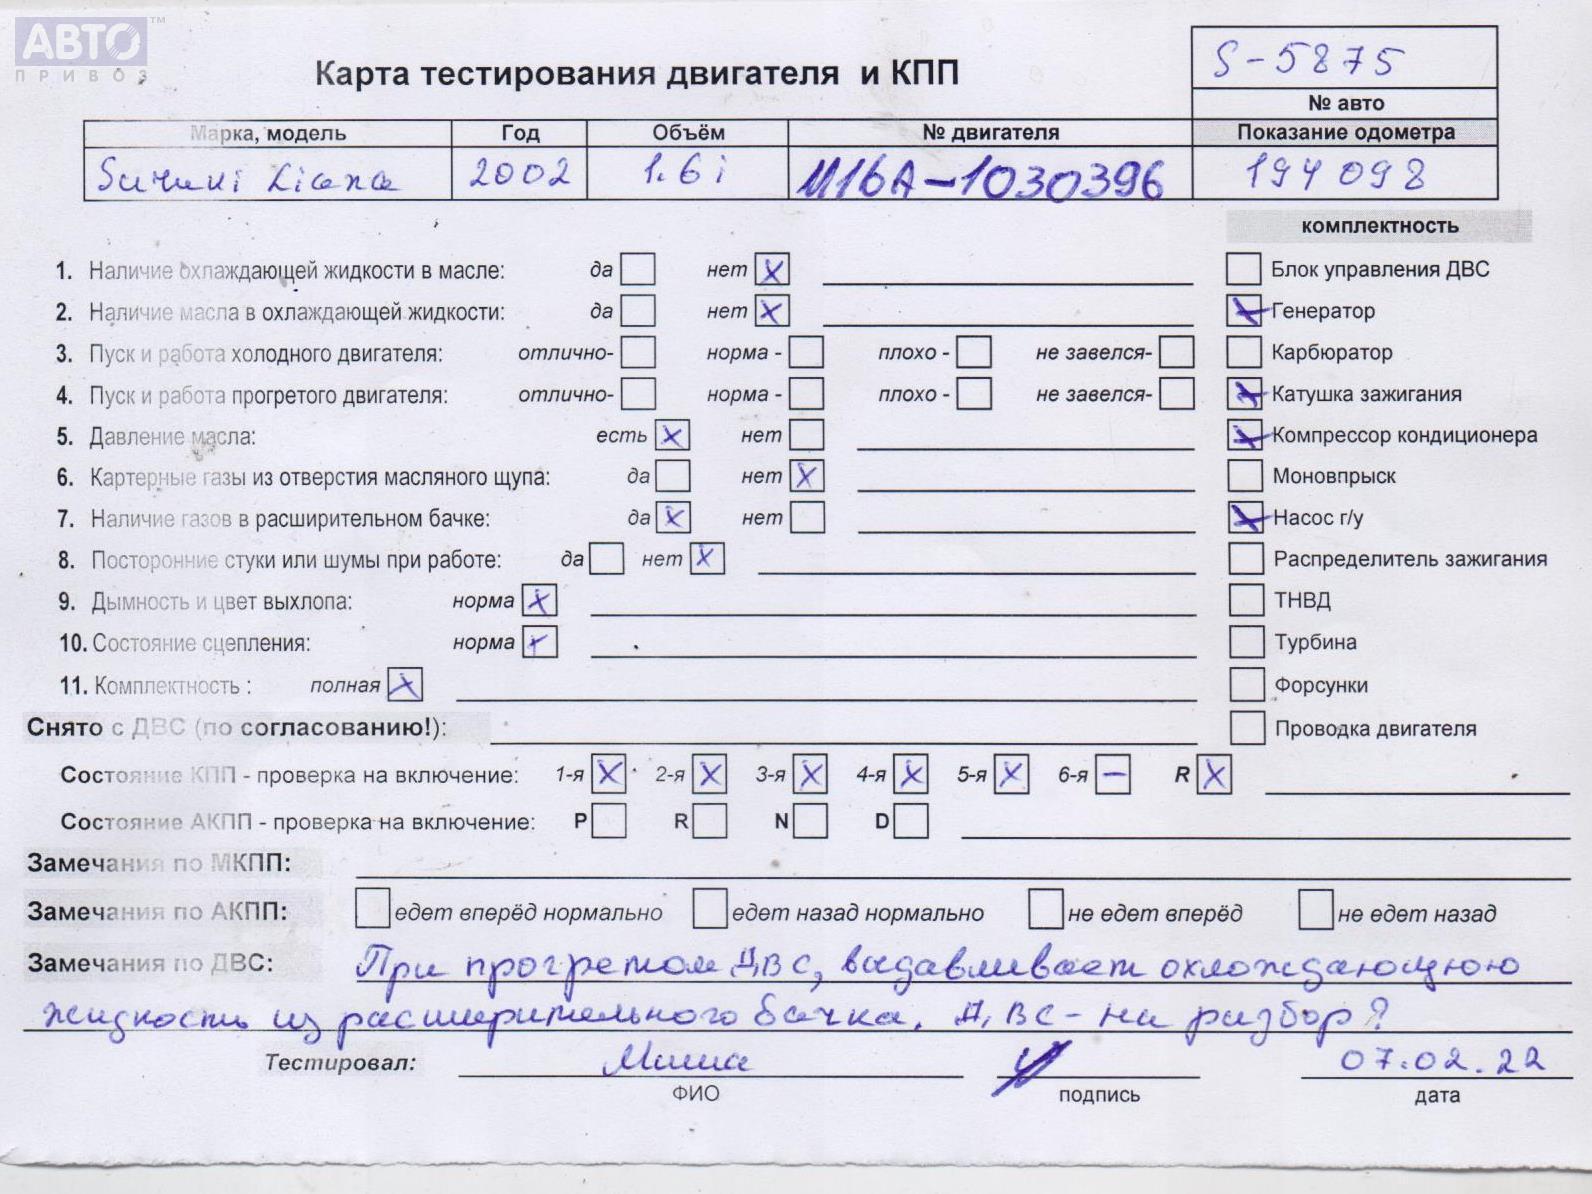 АВТО™
ПРИВОЗ
S-5875
Карта тестирования двигателя и КПП
№ авто
Марка, модель Год Объём № двигателя Показание одометра
Suzuki Liana 2002 1.6i M16A-1030396 194098
комплектность
1. Наличие охлаждающей жидкости в масле: да нет X Блок управления ДВС
2. Наличие масла в охлаждающей жидкости: да нет X X Генератор
3. Пуск и работа холодного двигателя: отлично- норма - плохо - не завелся- Карбюратор
4. Пуск и работа прогретого двигателя: отлично- норма - плохо - не завелся- X Катушка зажигания
5. Давление масла: есть X нет X Компрессор кондиционера
6. Картерные газы из отверстия масляного щупа: да нет X Моновпрыск
7. Наличие газов в расширительном бачке: да X нет X Насос г/у
8. Посторонние стуки или шумы при работе: да нет X Распределитель зажигания
9. Дымность и цвет выхлопа: норма X ТНВД
10. Состояние сцепления: норма X Турбина
11. Комплектность : полная X Форсунки
Снято с ДВС (по согласованию!): Проводка двигателя
Состояние КПП - проверка на включение: 1-я X 2-я X 3-я X 4-я X 5-я X 6-я – R X
Состояние АКПП - проверка на включение: P R N D
Замечания по МКПП:
Замечания по АКПП: едет вперёд нормально едет назад нормально не едет вперёд не едет назад
Замечания по ДВС: При прогретом ДВС, выдавливает охлождающюю
жидкость из расширительного бачка. ДВС - на разбор?
Тестировал: Миша 07.02.22
ФИО подпись дата